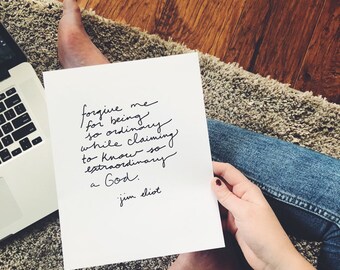 forgive me
for being
so ordinary
while claiming
to know so
extraordinary
a God.
-jim eliot